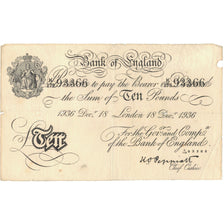 Bank of England
93366 93366
to pay the Bearer
the Sum of Ten Pounds
1936 Dec. 18 London 18 Dec. 1936
For the Gov.r and Comp.a
of the Bank of England
Ten
Chief Cashier